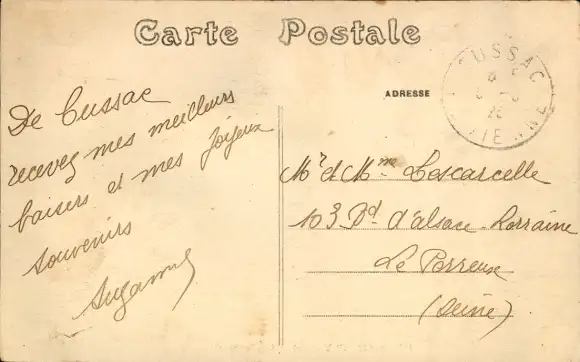 Carte Postale
CUSSAC
VIENNE
ADRESSE
De Cussac
recevez mes meilleurs
baisers et mes joyeux
souvenirs
Suzanne
Mr et Mme Lescarcelle
103 Bd. d'alsace-Lorraine
Le Perreux
(Seine)